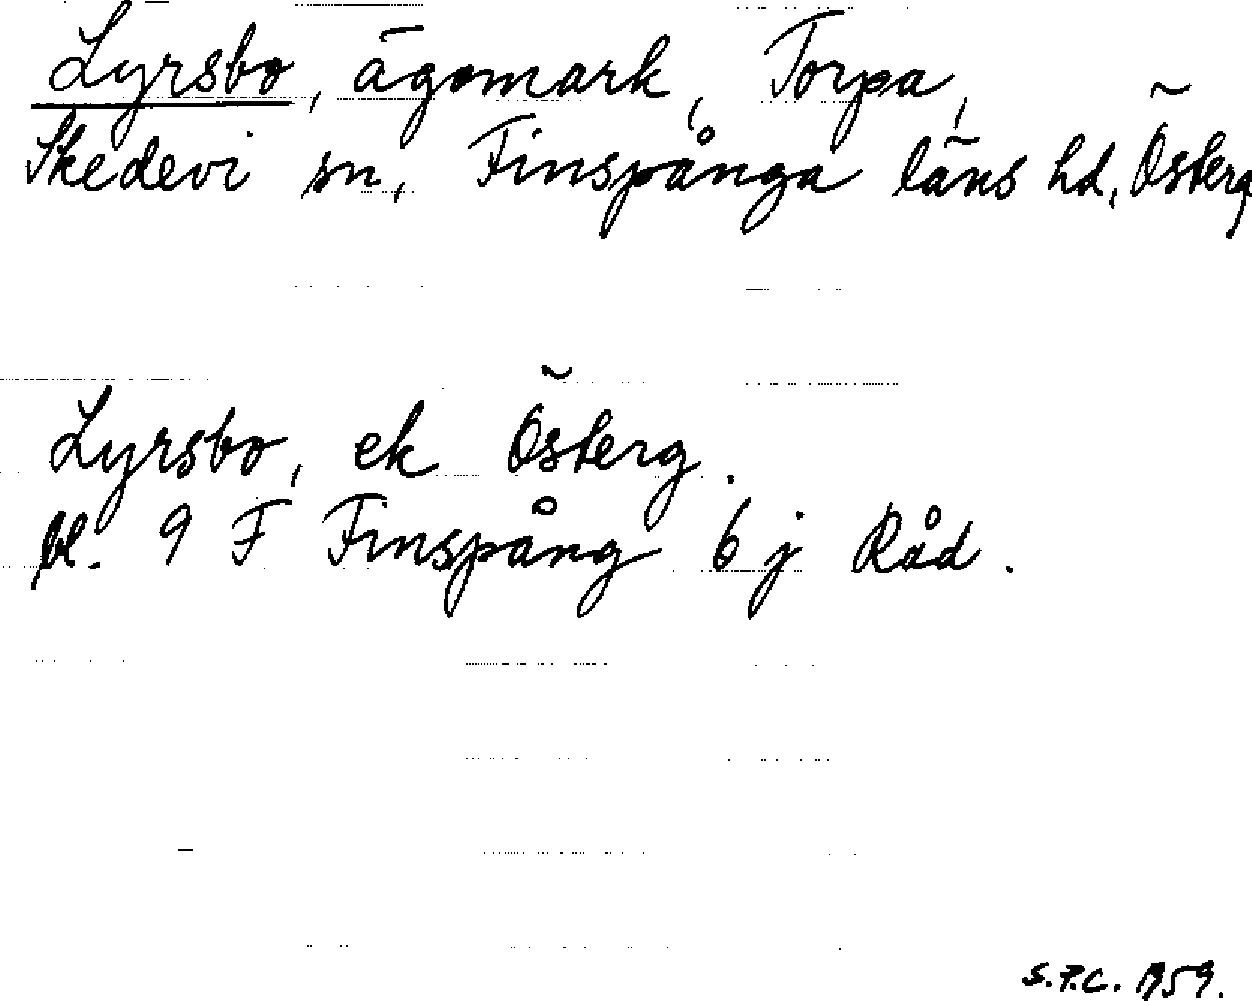 Lyrsbo, ägomark, Torpa,
Skedevi sn, Finspånga läns hd, Österg
Lyrsbo, ek Österg.
bl. 9 F Finspång 6 j Råd.
S.P.C. 1959.